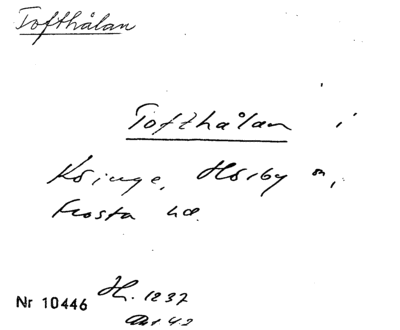 Tofthålan
Tofthålan i
Hörby sn,
Frosta hd.
Nr 10446 H. 1237